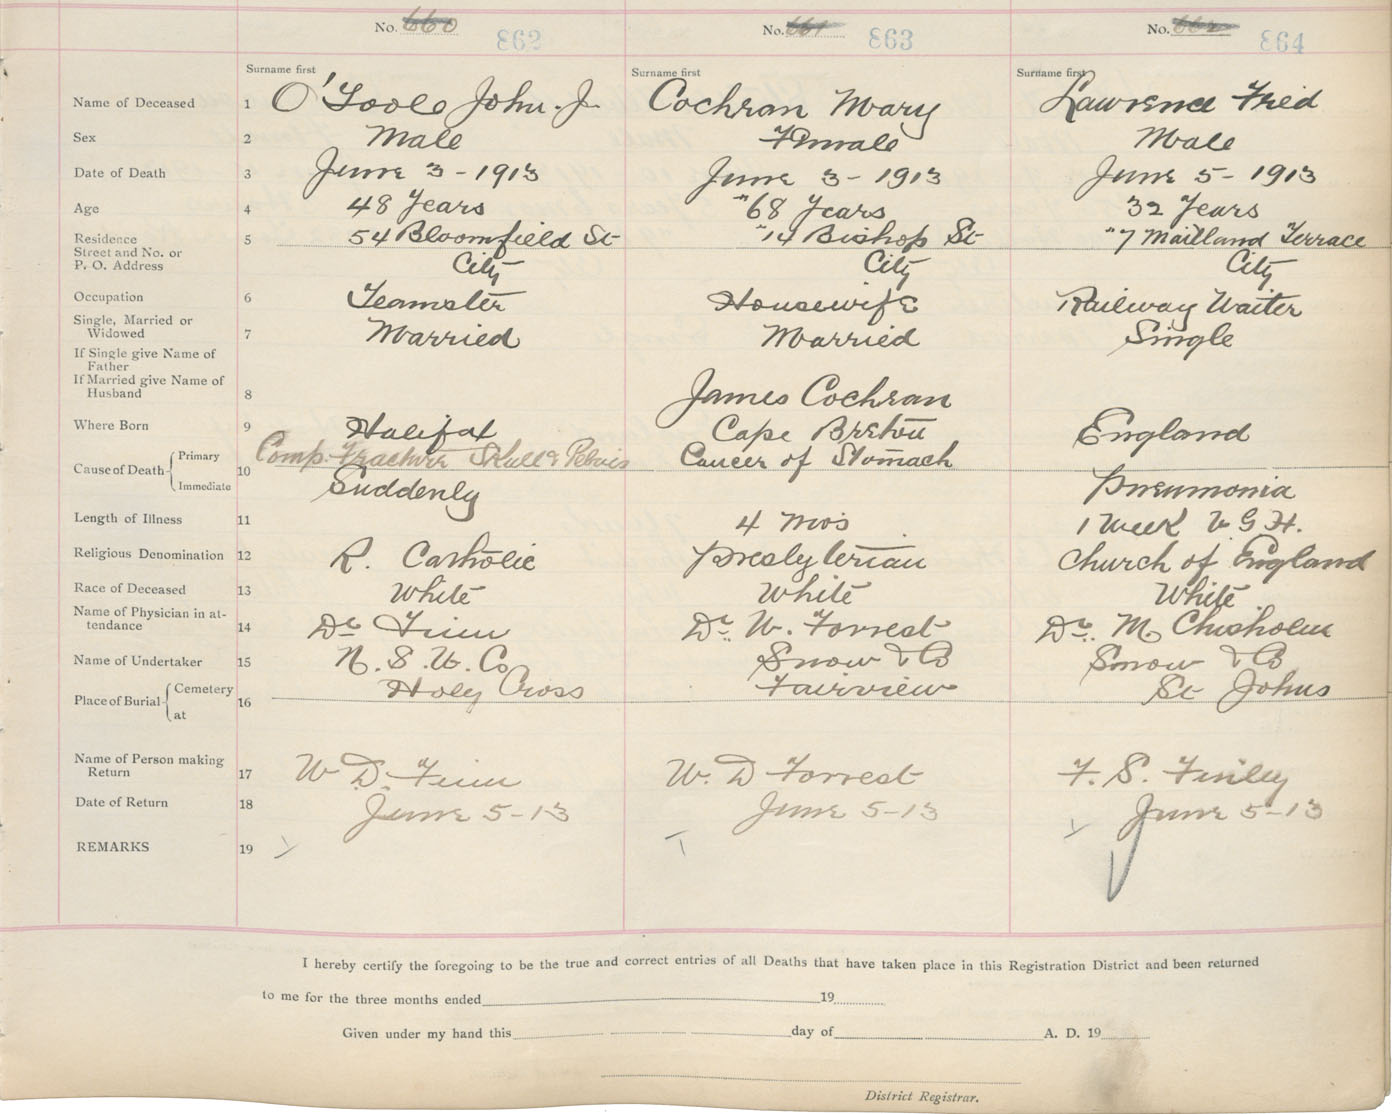 No. 660 862 No. 661 863 No. 662 864
Surname first Surname first Surname first
Name of Deceased 1 O'Toole John. J. Cochran Mary Lawrence Fred
Sex 2 Male Female Male
Date of Death 3 June 3 - 1913 June 3 - 1913 June 5 - 1913
Age 4 48 Years "68 Years 32 Years
Residence 5 54 Bloomfield St "14 Bishop St "7 Maitland Terrace
Street and No. or
P. O. Address City City City
Occupation 6 Teamster Housewife Railway Waiter
Single, Married or
Widowed 7 Married Married Single
If Single give Name of
Father
If Married give Name of
Husband 8 James Cochran
Where Born 9 Halifax Cape Breton England
Cause of Death Primary Comp. Fracture Skull & Pelvis Cancer of Stomach
Immediate 10 Suddenly Pneumonia
Length of Illness 11 4 Mos 1 Week V. G. H.
Religious Denomination 12 R. Catholic Presbyterian Church of England
Race of Deceased 13 White White White
Name of Physician in at-
tendance 14 Dr Finn Dr. W. Forrest Dr. M. Chisholm
Name of Undertaker 15 N. S. U. Co Snow & Co Snow & Co
Place of Burial Cemetery Holy Cross Fairview St Johns
at 16
Name of Person making
Return 17 W. D. Finn W. D Forrest F. S. Finley
Date of Return 18 June 5-13 June 5-13 June 5-13
REMARKS 19
I hereby certify the foregoing to be the true and correct entries of all Deaths that have taken place in this Registration District and been returned
to me for the three months ended 19
Given under my hand this day of A. D. 19
District Registrar.